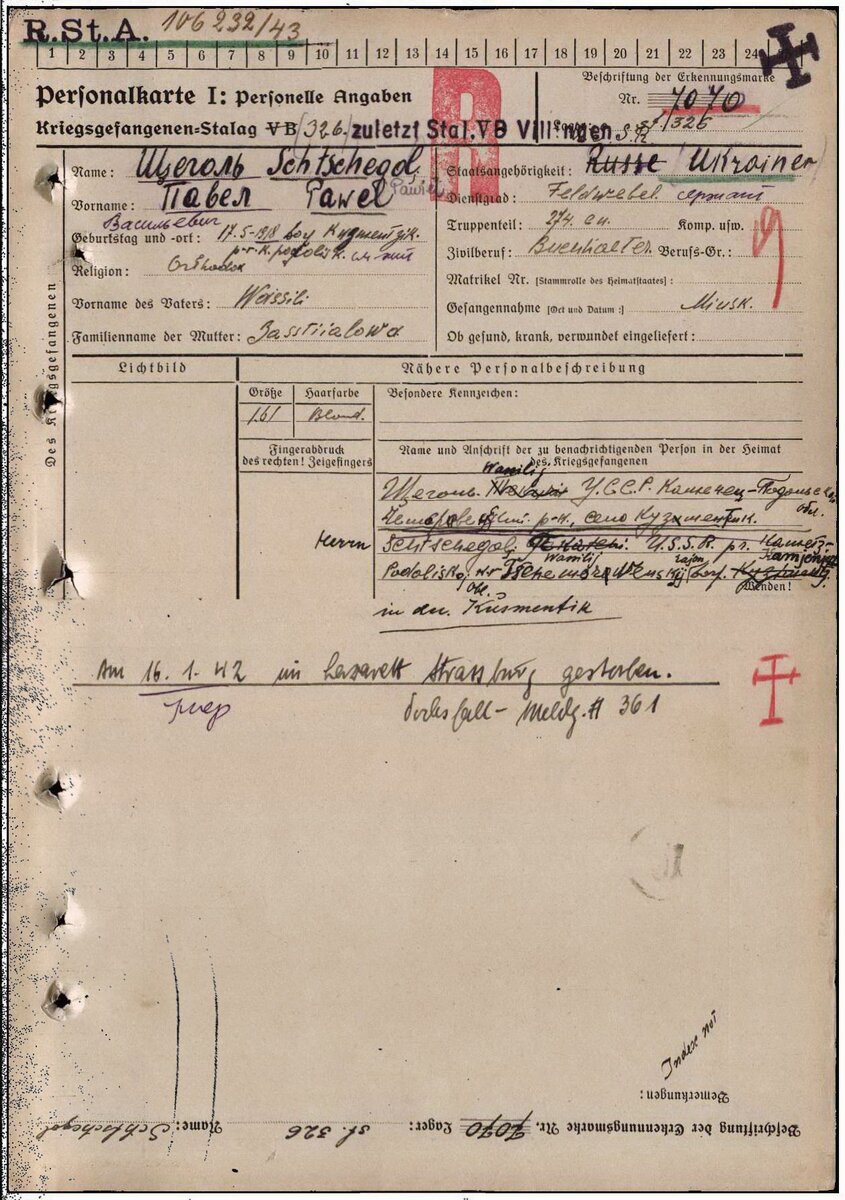 R.St.A. 106 232/43
1 2 3 4 5 6 7 8 9 10 11 12 13 14 15 16 17 18 19 20 21 22 23 24
Personalkarte I: Personelle Angaben
Kriegsgefangenen-Stalag VB /326. zuletzt Stal.VB Villingen
R
Beschriftung der Erkennungsmarke
Nr. 7070
Lager: St/326
Des Kriegsgefangenen
Name: Щеголь Schtschegol
Vorname: Павел Pawel
Васильевич
Geburtstag und -ort: 17.5-1918
Religion: Orthodox
Vorname des Vaters: Wassili
Familienname der Mutter:
Staatsangehörigkeit: Russe / Ukrainer
Dienstgrad: Feldwebel
Truppenteil: 274 Komp. usw.
Zivilberuf: Buchhalter Berufs-Gr.:
Matrikel Nr. [Stammrolle des Heimatstaates]:
Gefangennahme [Ort und Datum:] Minsk.
Ob gesund, krank, verwundet eingeliefert:
Lichtbild
Nähere Personalbeschreibung
Größe Haarfarbe Besondere Kennzeichen:
161 Blond.
Fingerabdruck
des rechten! Zeigefingers
Name und Anschrift der zu benachrichtigenden Person in der Heimat
des Kriegsgefangenen
Wassilij
Щеголь У.С.С.Р. Каменец-Подольск
обл.
р-н, село Кузментик.
Herrn Schtschegol U.S.S.R.
Wassilij rajon
Podolisk
Obl. Wenden!
in der. Kusmentik
Am 16.1.42 im Lazarett Strassburg gestorben.
умер Todesfall-Meldg. # 361
Index not
Bemerkungen:
Beschriftung der Erkennungsmarke Nr. 7070 Lager: St. 326 Name: Schtschegol